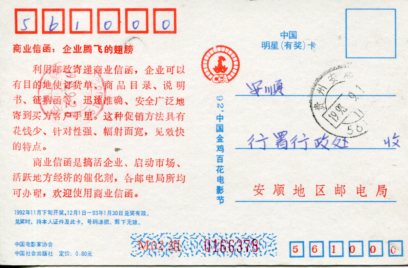 561000
商业信函，企业腾飞的翅膀
利用邮政寄递商业信函，企业可以
有目的地使订货单、商品目录、说明
书、征购函等，迅速准确、安全广泛地
寄到买方客户手里。这种促销方法具有
花钱少、针对性强、辐射面宽，见效快
的特点。
商业信函是搞活企业、启动市场、
活跃地方经济的催化剂，各邮电局所均
可办理，欢迎使用商业信函。
1992年11月下旬开奖，12月1日—93年1月30日兑奖有效。
中国电影家协会
中国社会出版社 定价：0.60元
0166378
92'中国金鸡百花电影节
中国
明星（有奖）卡
安顺
行署行政处 收
安顺地区邮电局
561000